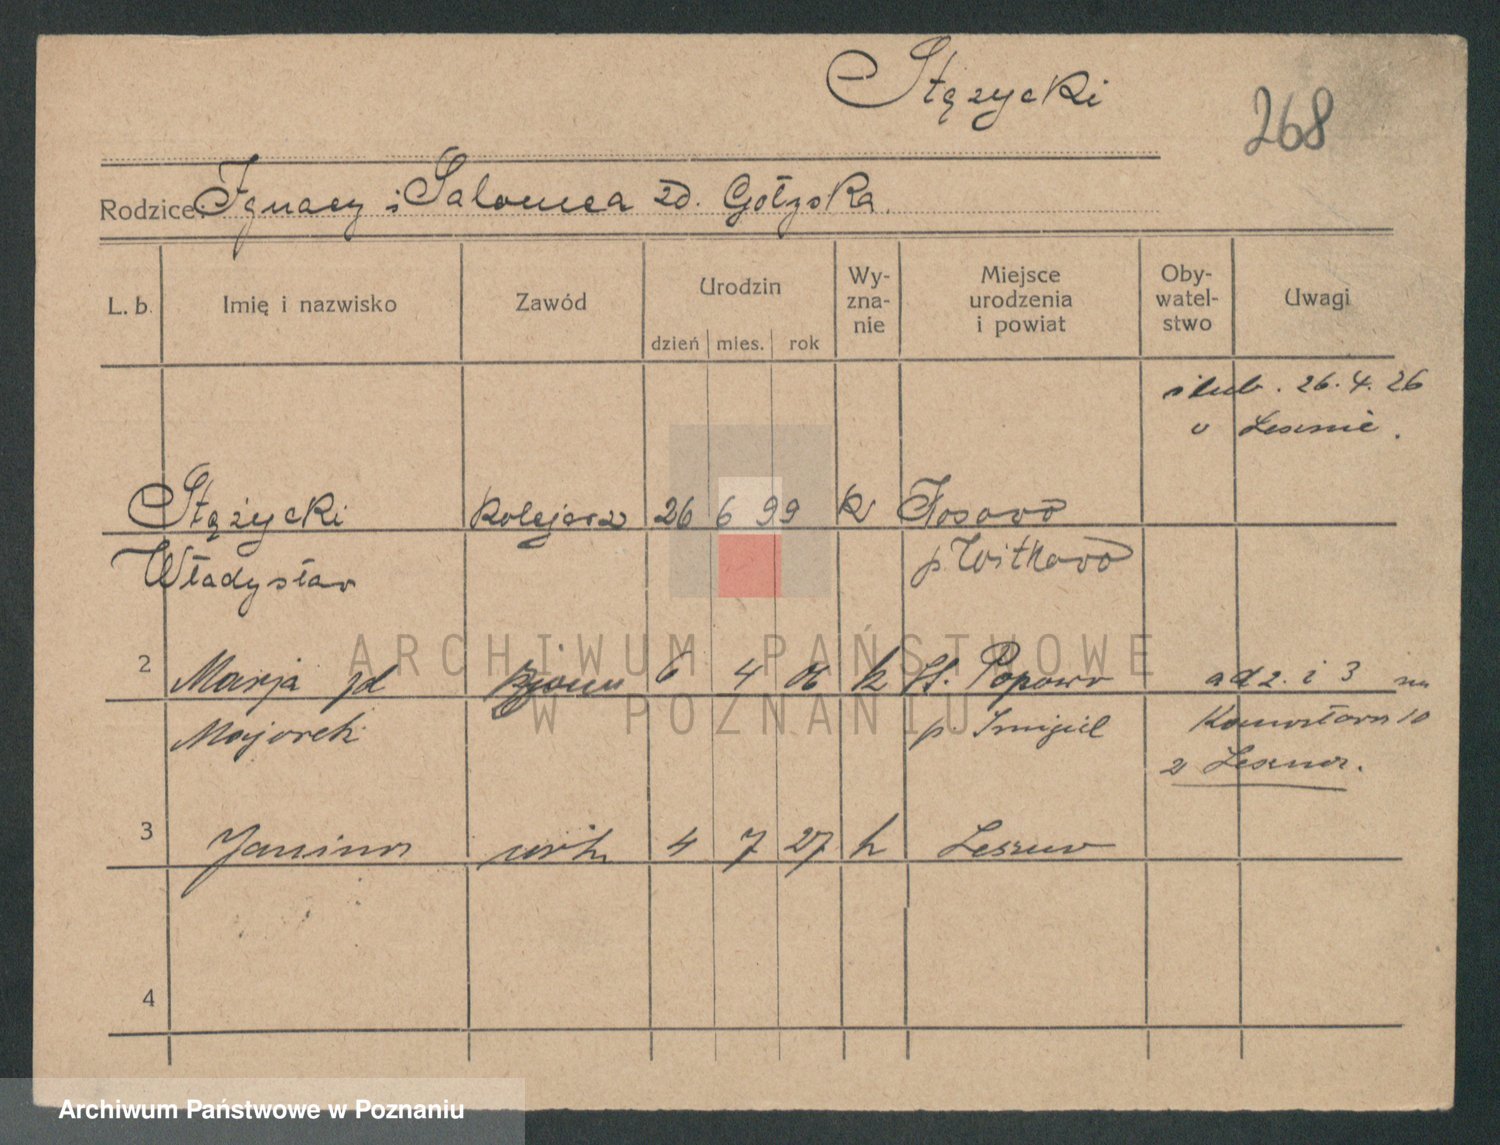 Stążycki
268
Rodzice: Ignacy i Salomea zd. Gołzska.
L. b. Imię i nazwisko Zawód Urodzin Wy-zna-nie Miejsce urodzenia i powiat Oby-watel-stwo Uwagi
dzień mies. rok
ślub. 26.4.26
w Lesznie.
Stążycki kolejarz 26 6 99 k
Władysław p. Witkowo
2 Marja zd 6 4 06 k St. Popowo ad 2. i 3
Majorek p. Śmigiel 10
z Leszna.
3 Janina 4 7 27 k Leszno
4
ARCHIWUM PAŃSTWOWE
W POZNANIU
Archiwum Państwowe w Poznaniu